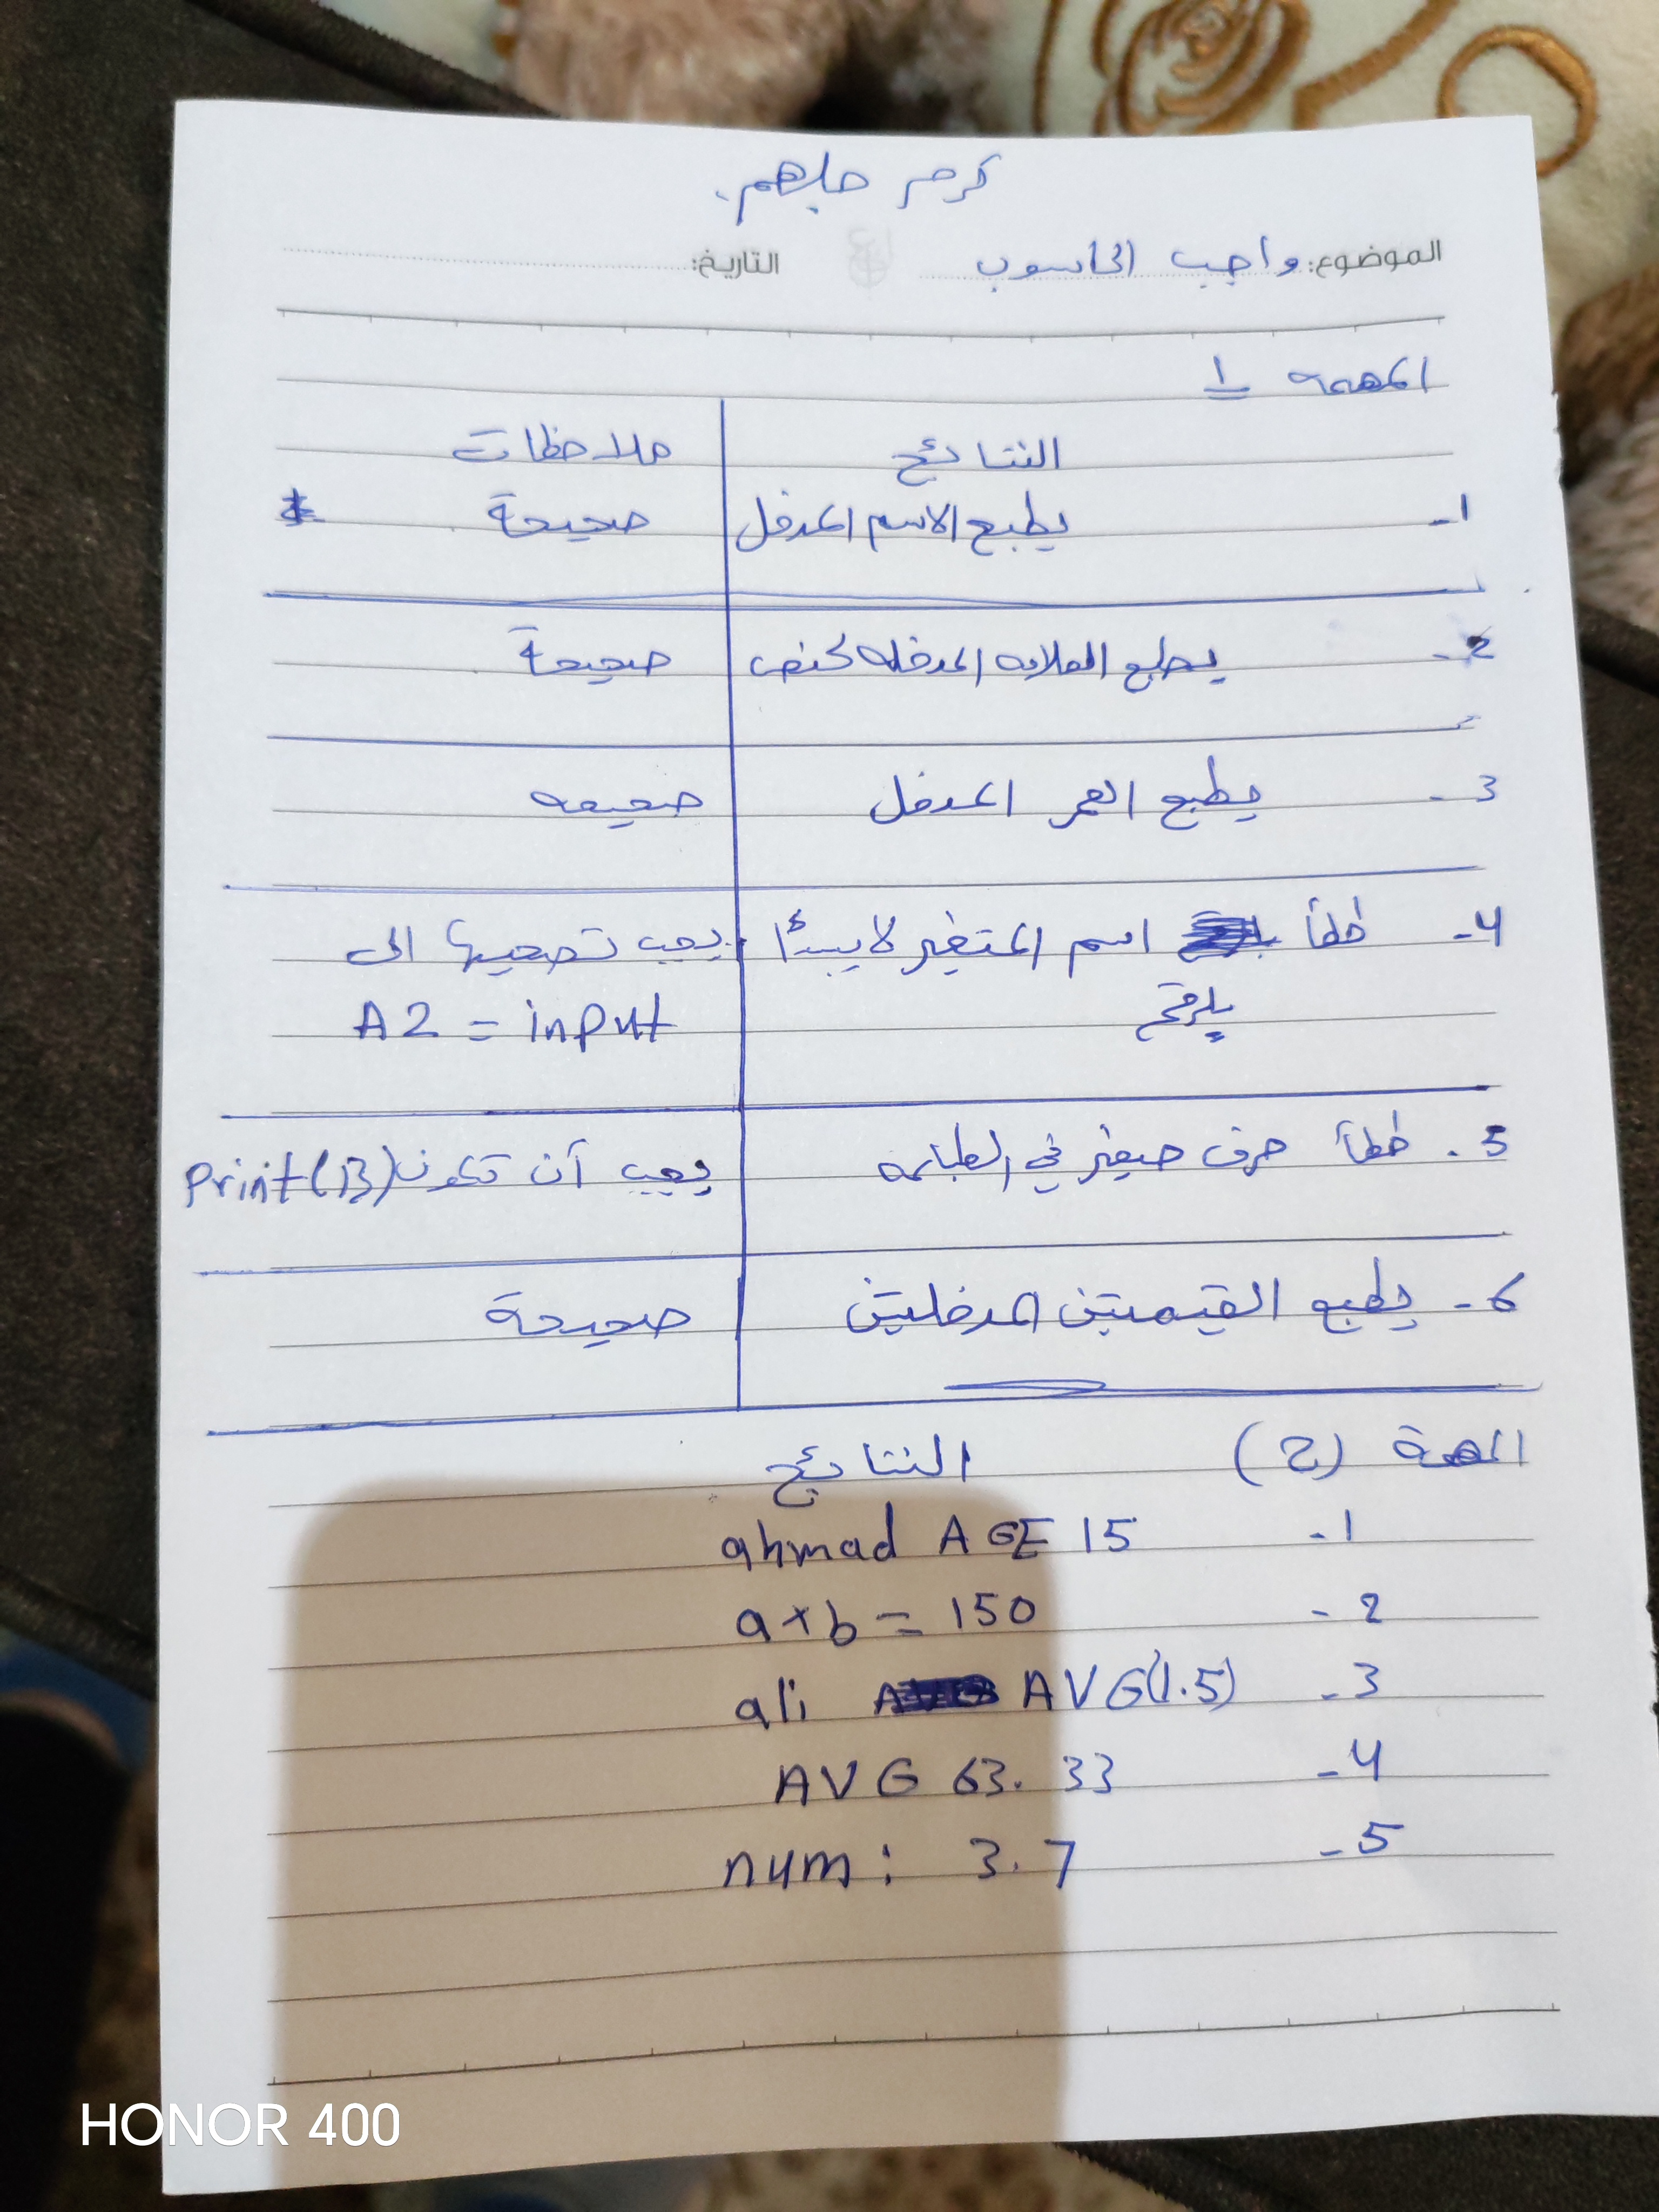 كرم ملهم.
الموضوع: واجب الحاسوب التاريخ:
المهمه 1
النتائج ملاحظات
1- يطبع الاسم المدخل صحيحة
2- يطبع العلامه المدخله كنص صحيحة
3- يطبع العمر المدخل صحيحه
4- خطأ اسم المتغير لا يبدأ يجب تصحيها الى
برقم A2 = input
5. خطأ حرف صغير في الطباعه يجب أن تكون print(B)
6- يطبع القيمتين المدخلتين صحيحة
المهمة (2) النتائج
1- ahmad AGE 15
2- a×b = 150
3- ali AVG(1.5)
4- AVG 63.33
5- num: 3.7
HONOR 400